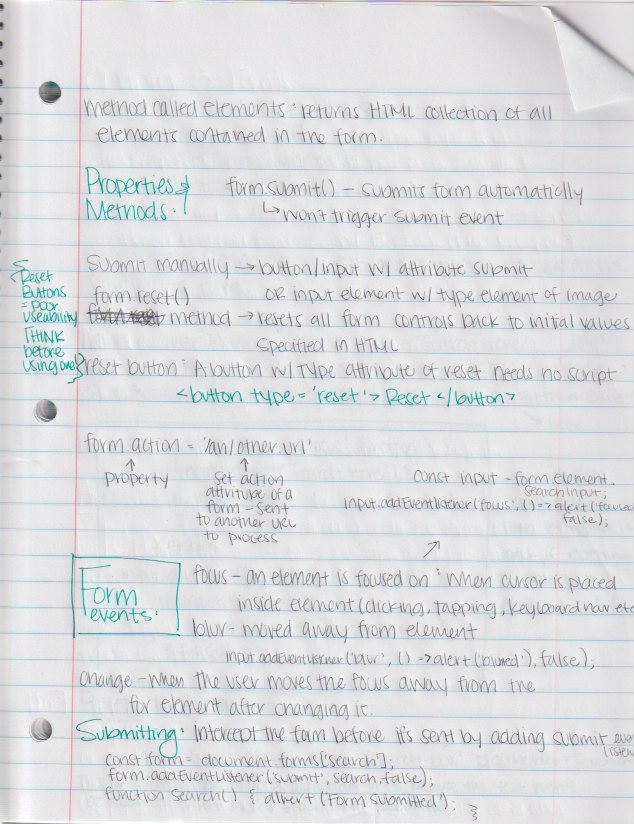 method called elements : returns HTML collection of all
elements contained in the form.
Properties &
Methods :
form.submit() – submits form automaticlly
↳ won't trigger submit event
Submit manually → button/input w/ attribute submit
OR input element w/ type element of image
form.reset()
method → resets all form controls back to initial values
specified in HTML
Reset
Buttons
= poor
useability
THINK
before
using one
reset button : A button w/ type attribute of reset needs no script
<button type = 'reset'> Reset </button>
form.action = '/an/other.url'
↑
property
↑
set action
attribute of a
form – sent
to another URL
to process
const input = form.element.
searchInput;
input.addEventListener('focus', () => alert('focused
false);
Form
events:
focus – an element is focused on : When cursor is placed
inside element (clicking, tapping, keyboard nav etc
blur – moved away from element
input.addEventListener('blur', () => alert('blurred'), false);
change – when the user moves the focus away from the
for element after changing it.
Submitting: intercept the form before it's sent by adding submit event
listen
const form = document.forms['search'];
form.addEventListener('submit', search, false);
function search() { alhert ('Form submitted'); }